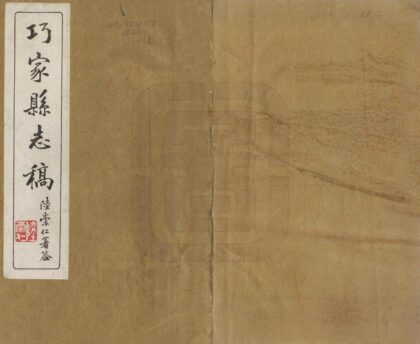 巧家縣志稿
陸崇仁署簽